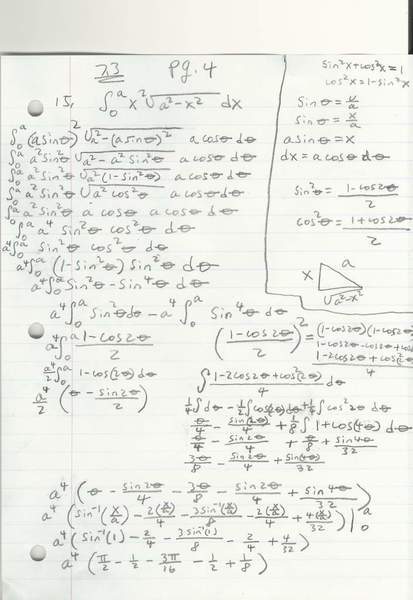 7.3 pg. 4
15, ∫₀ᵃ x²√(a²-x²) dx
∫₀ᵃ (a sinθ)² √(a²-(a sinθ)²) a cosθ dθ
∫₀ᵃ a² sin²θ √(a²-a² sin²θ) a cosθ dθ
∫₀ᵃ a² sin²θ √(a²(1-sin²θ)) a cosθ dθ
∫₀ᵃ a² sin²θ √(a² cos²θ) a cosθ dθ
∫₀ᵃ a² sin²θ a cosθ a cosθ dθ
∫₀ᵃ a⁴ sin²θ cos²θ dθ
a⁴∫₀ᵃ sin²θ cos²θ dθ
a⁴∫₀ᵃ (1-sin²θ) sin²θ dθ
a⁴∫₀ᵃ sin²θ - sin⁴θ dθ
a⁴∫₀ᵃ sin²θ dθ - a⁴ ∫₀ᵃ sin⁴θ dθ
a⁴∫₀ᵃ (1-cos2θ)/2
a⁴/2 ∫₀ᵃ 1-cos(2θ) dθ
a⁴/2 (θ - sin2θ/2)
sin²x+cos²x=1
cos²x=1-sin²x
sinθ = x/a
a sinθ = x
dx = a cosθ dθ
sin²θ = (1-cos2θ)/2
cos²θ = (1+cos2θ)/2
x a
√(a²-x²)
((1-cos2θ)/2)² = (1-cos2θ)(1-cos2
1-cos2θ-cos2θ+co
(1-2cos2θ+cos²(2θ)/4
∫ (1-2cos2θ+cos²(2θ))/4 dθ
1/4∫dθ - 1/2∫cos(2θ)dθ + 1/4∫cos²2θ dθ
θ/4 - sin(2θ)/4 + 1/8∫1+cos(4θ) dθ
θ/4 - sin2θ/4 + θ/8 + sin4θ/32
3θ/8 - sin2θ/4 + sin(4θ)/32
a⁴ (θ - sin2θ/4 - 3θ/8 - sin2θ/4 + sin4θ/32)
a⁴ (sin⁻¹(x/a) - 2(x/a)/4 - 3sin⁻¹(x/a)/8 - 2(x/a)/4 + 4(x/a)/32)|₀ᵃ
a⁴ (sin⁻¹(1) - 2/4 - 3sin⁻¹(1)/8 - 2/4 + 4/32)
a⁴ (π/2 - 1/2 - 3π/16 - 1/2 + 1/8)